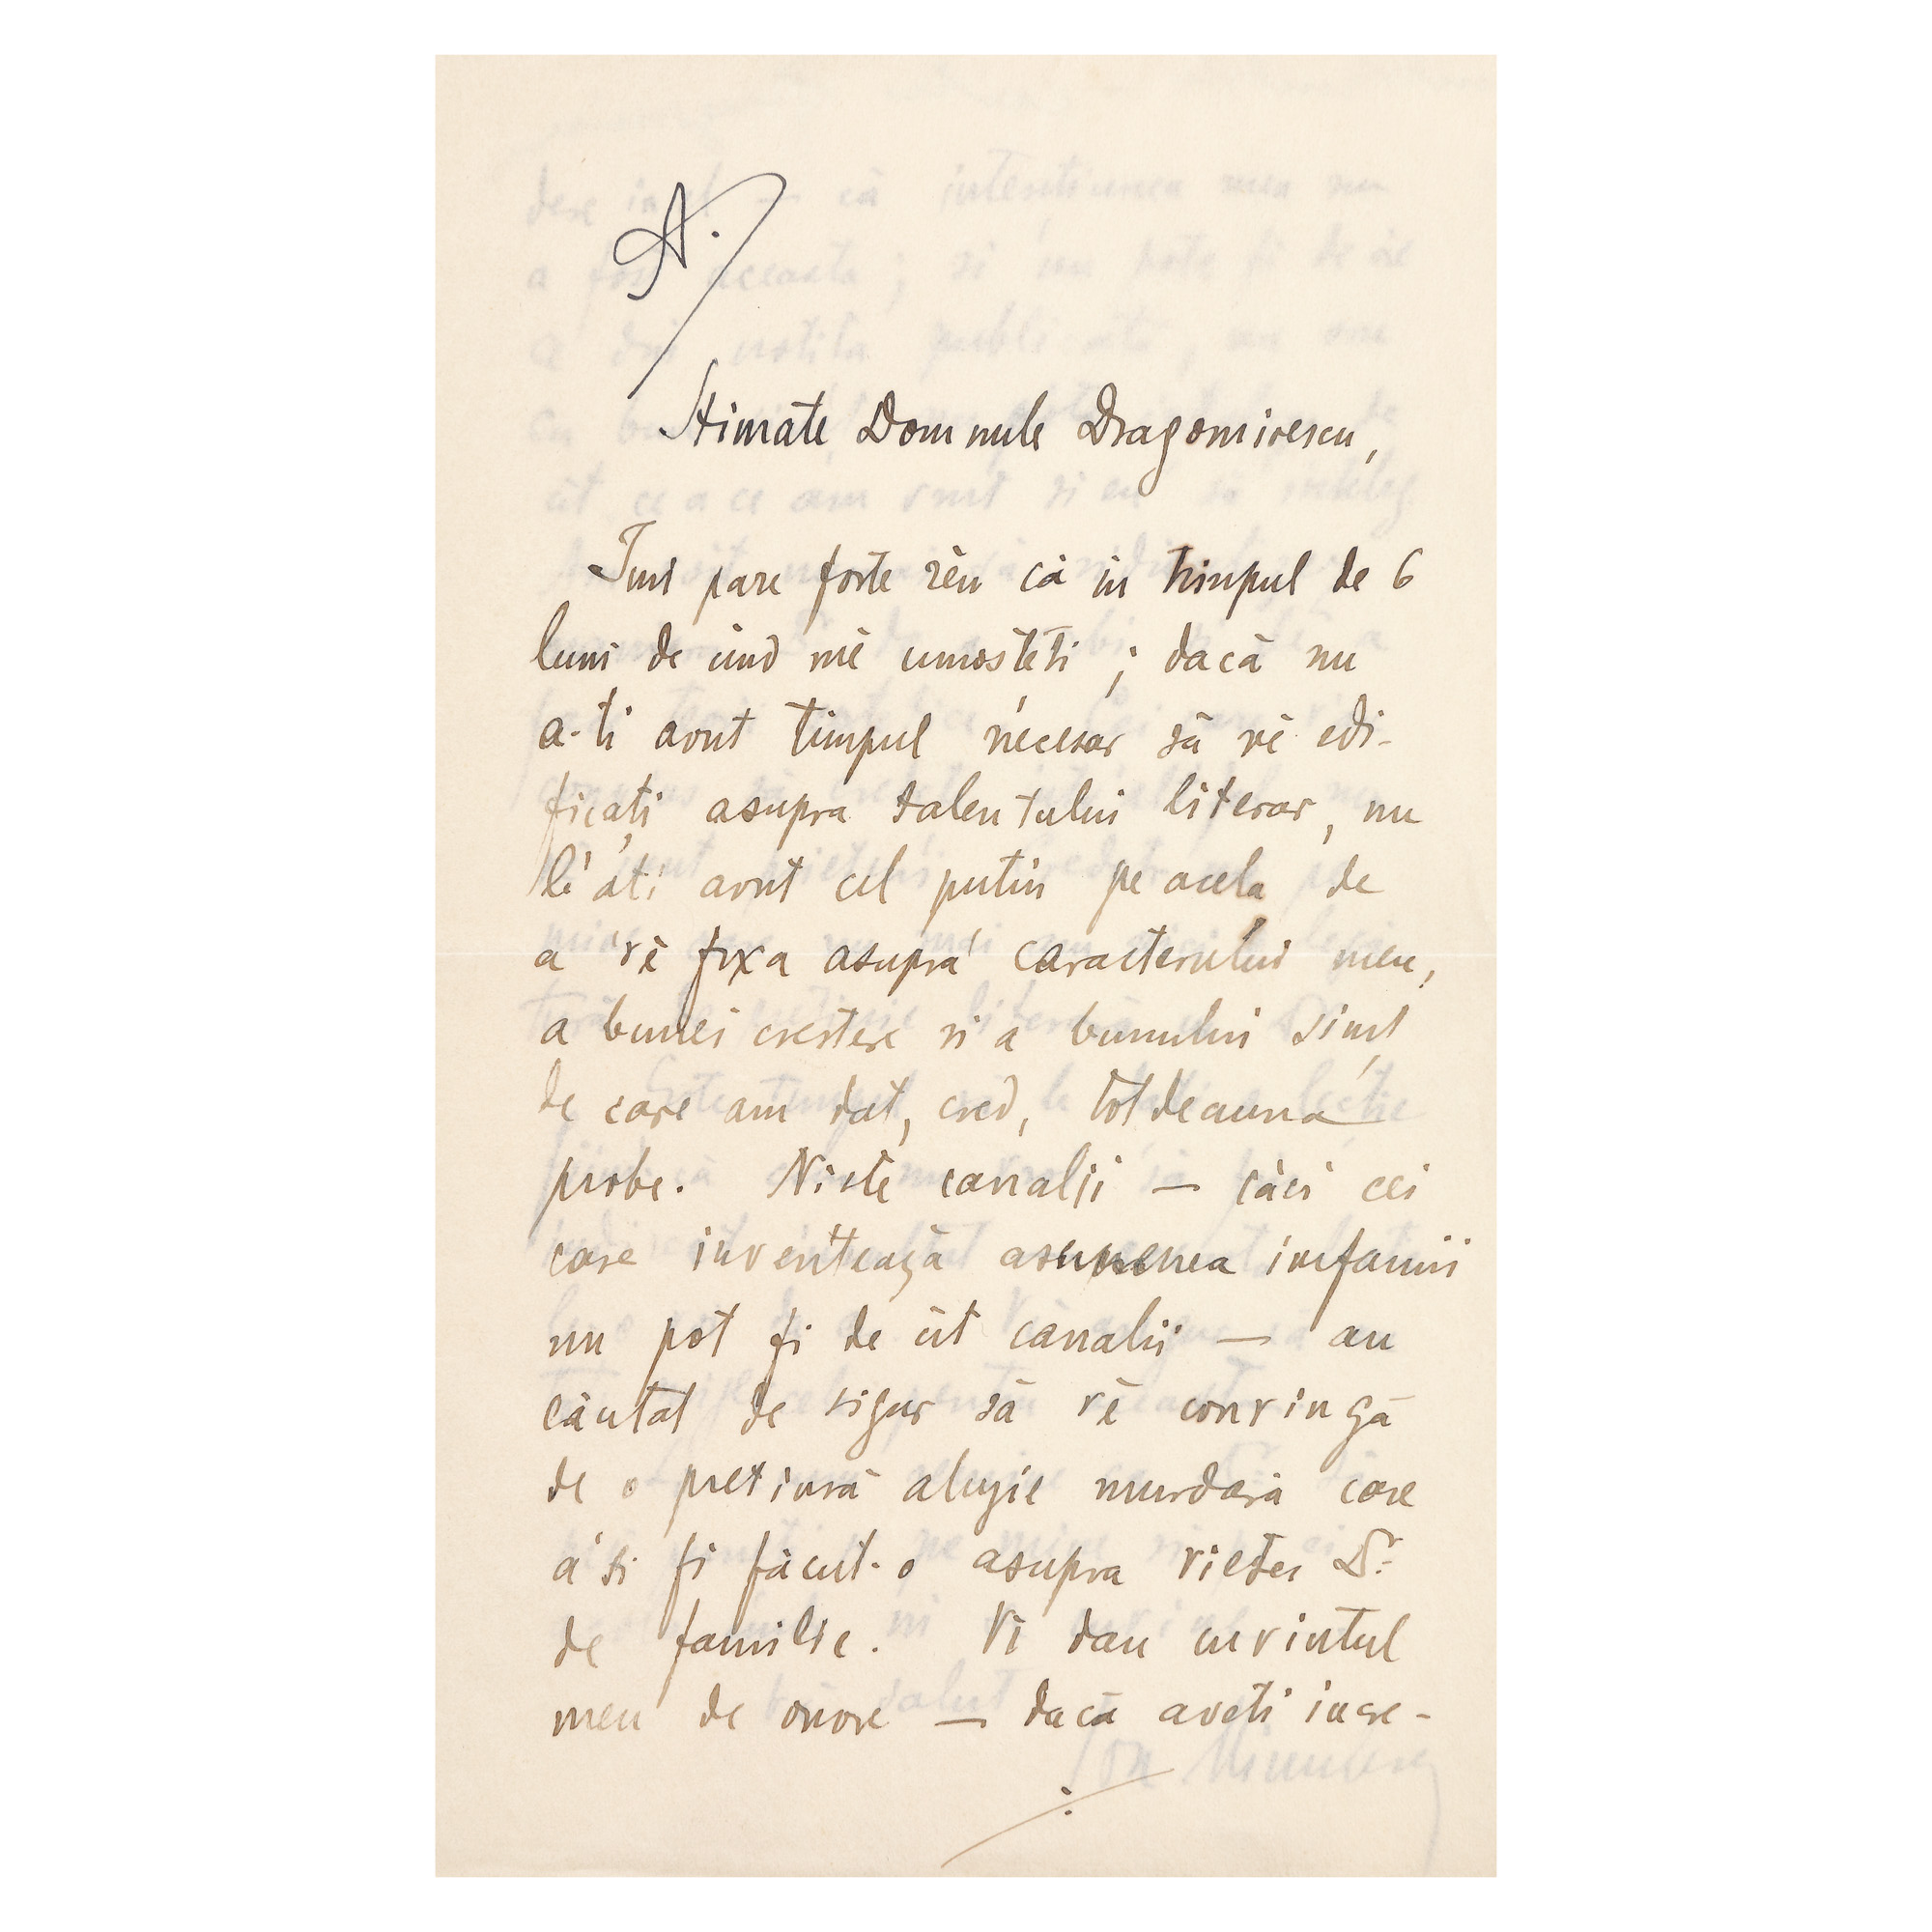 A.
Stimate Domnule Dragomirescu,
Imi pare forte rĕu că in timpul de 6
luni de când mĕ cunosteti ; dacă nu
a-ti avut timpul necesar să vĕ edi-
ficați asupra talentului literar, nu
l'ati avut cel putin pe acela de
a vĕ fixa asupra caracterului meu,
a bunei crestere si a bunului simț
de care am dat, cred, totdeauna
probe. Niste canalii — căci cei
care inventează asemenea infamii
nu pot fi de cât canalii — au
căutat de sigur să vĕ convingă
de o pretinsă aluzie murdară care
a'si fi făcut-o asupra vietei Dv.
de familie. Vĕ dau cuvintul
meu de onore — dacă aveti incre-